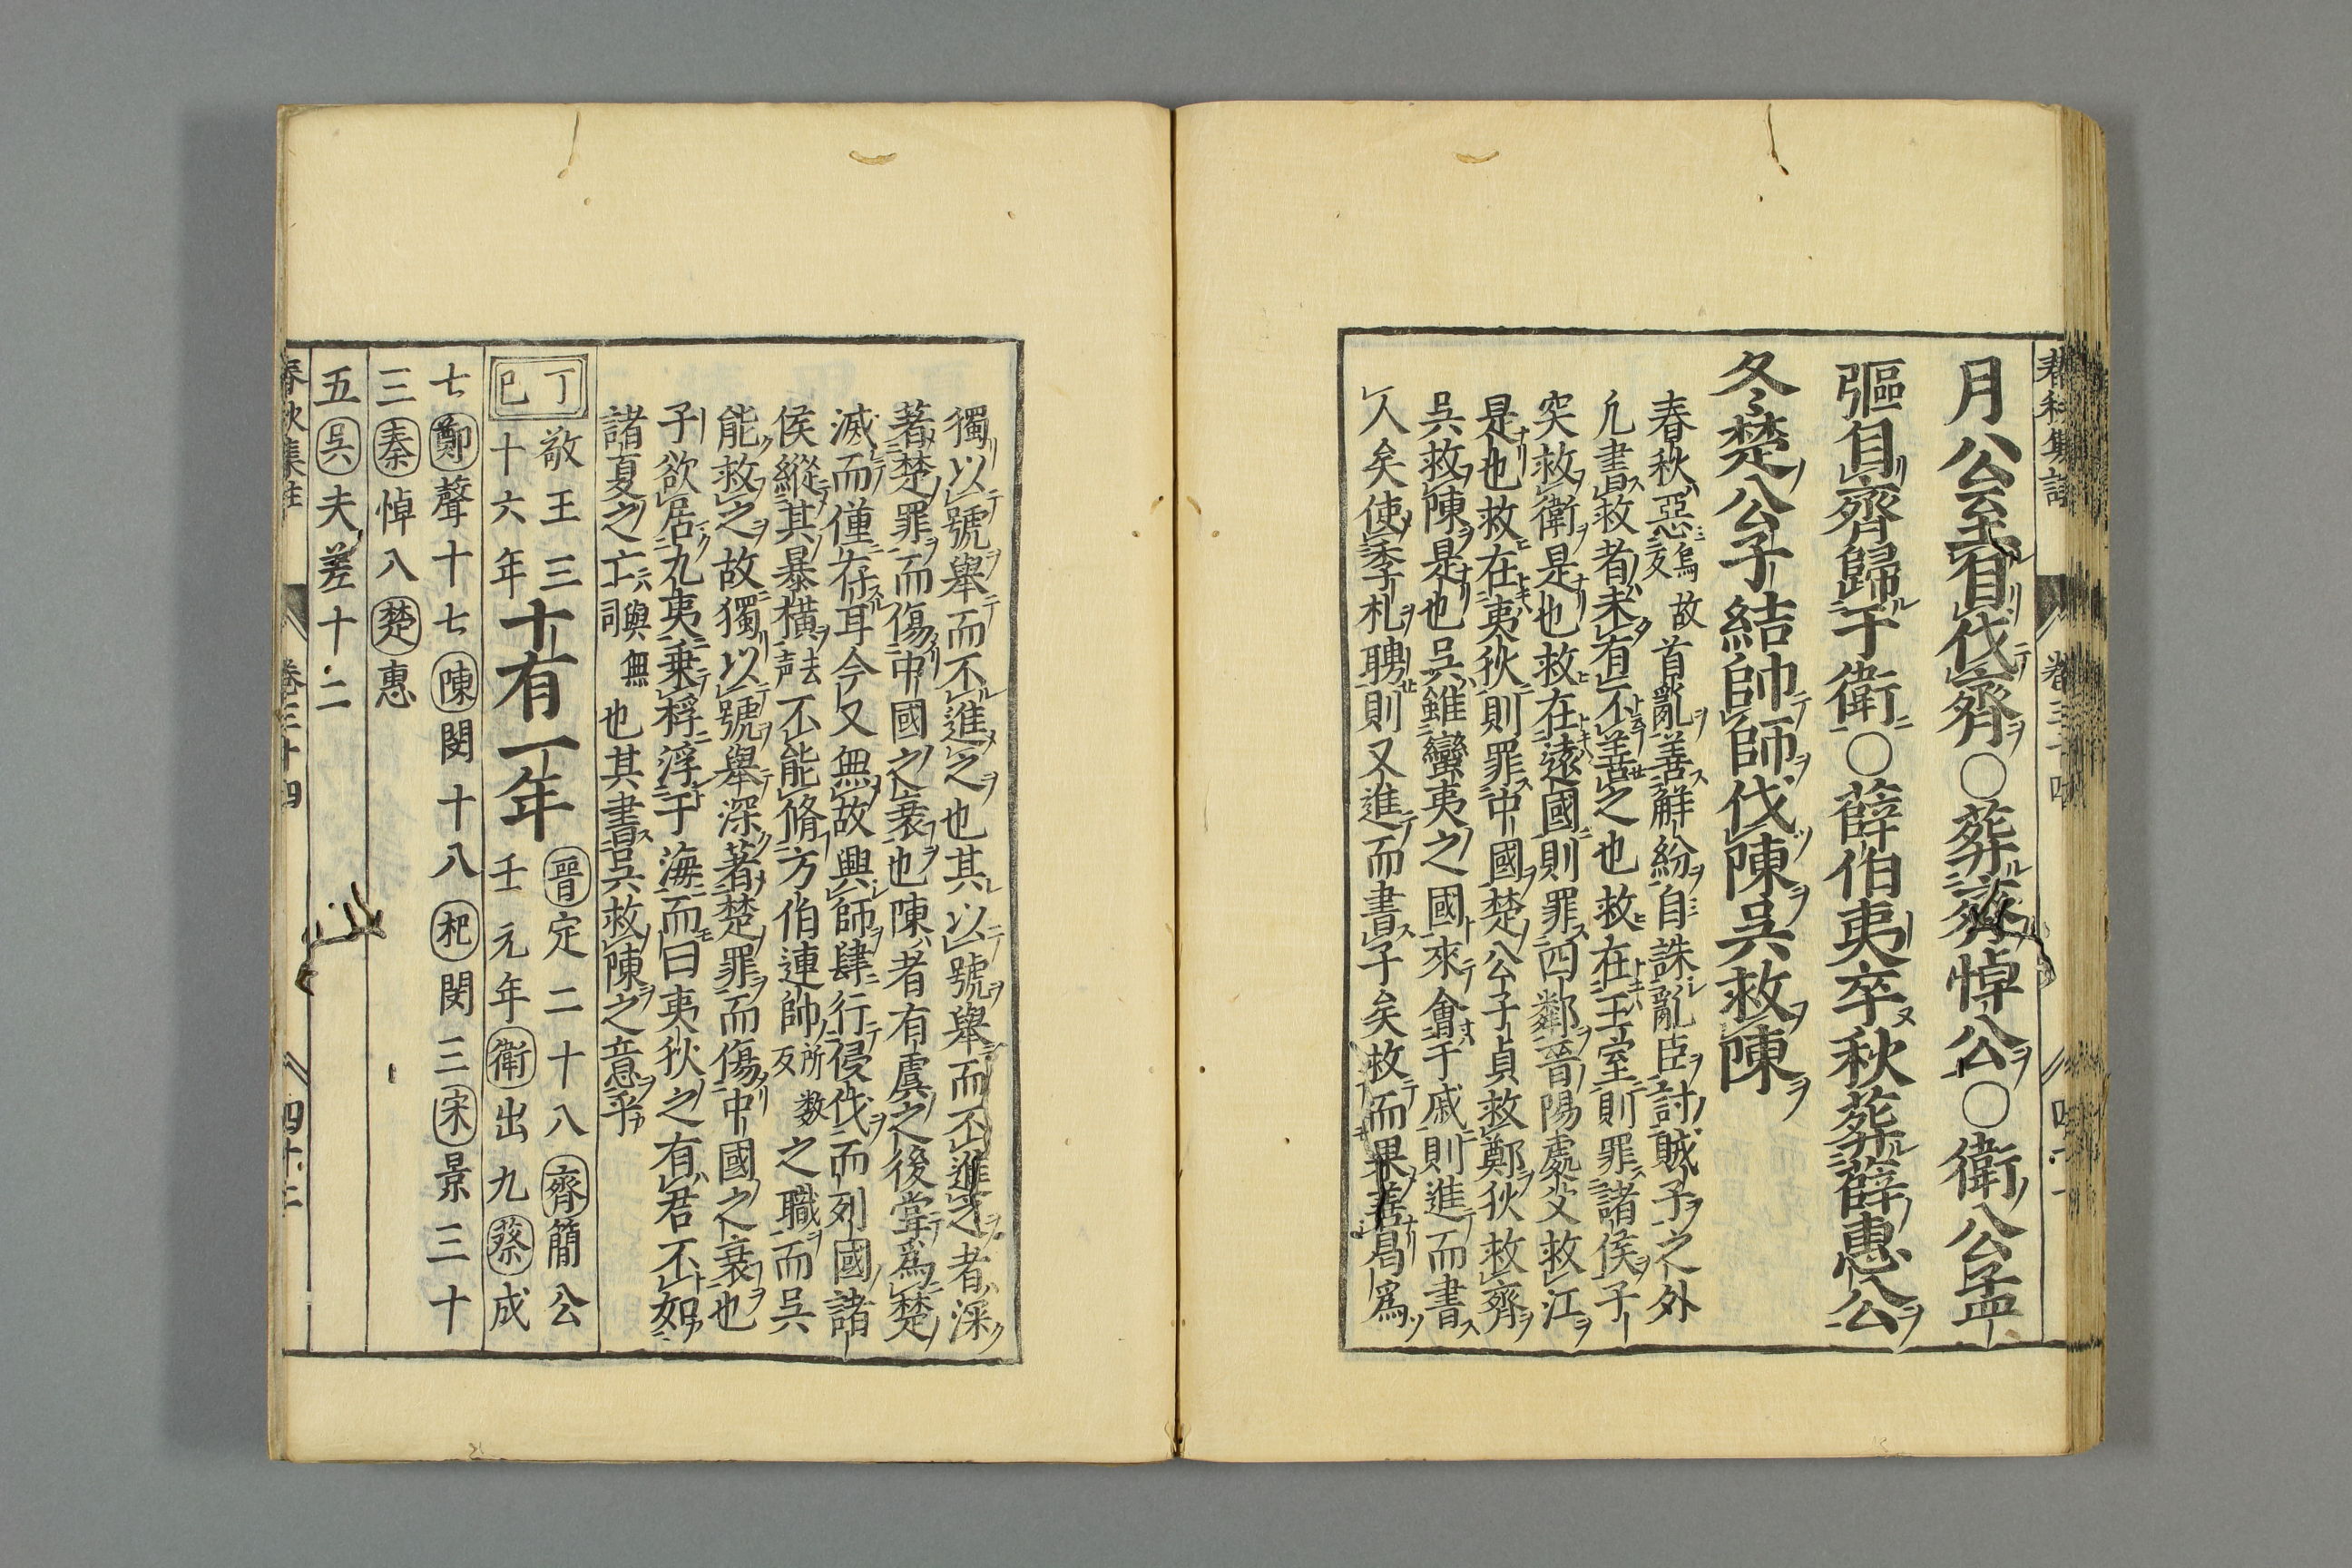 月公至自伐齊○葬齊悼公○衛公孟
彄自齊歸于衛○薛伯夷卒秋葬薛惠公
冬楚公子結帥師伐陳吳救陳
春秋惡烏故反首亂善解紛自誅亂臣討賊子之外
凢書救者未有不善之也救在王室則罪諸侯子
突救衛是也救在遠國則罪四鄰晉陽處父救江
是也救在夷狄則罪中國楚公子貞救鄭狄救齊
吳救陳是也吳雖蠻夷之國來會于戚則進而書
人矣使季札聘則又進而書子矣救而果善曷爲
獨以號舉而不進之也其以號舉而不進之者深
著楚罪而傷中國之衰也陳者有虞之後嘗爲楚
滅而僅存耳今又無故興師肆行侵伐而列國諸
侯縱其暴橫去聲不能脩方伯連帥所數反之職而吳
能救之故獨以號舉深著楚罪而傷中國之衰也
子欲居九夷乗桴浮于海而曰夷狄之有君不如
諸夏之亡與無同也其書吳救陳之意乎
丁巳敬王三十六年十有一年晉定二十八齊簡公壬元年衛出九蔡成
七鄭聲十七陳閔十八杞閔三宋景三十
三秦悼八楚惠
五吳夫差十二
春秋集註 卷三十四 四十二